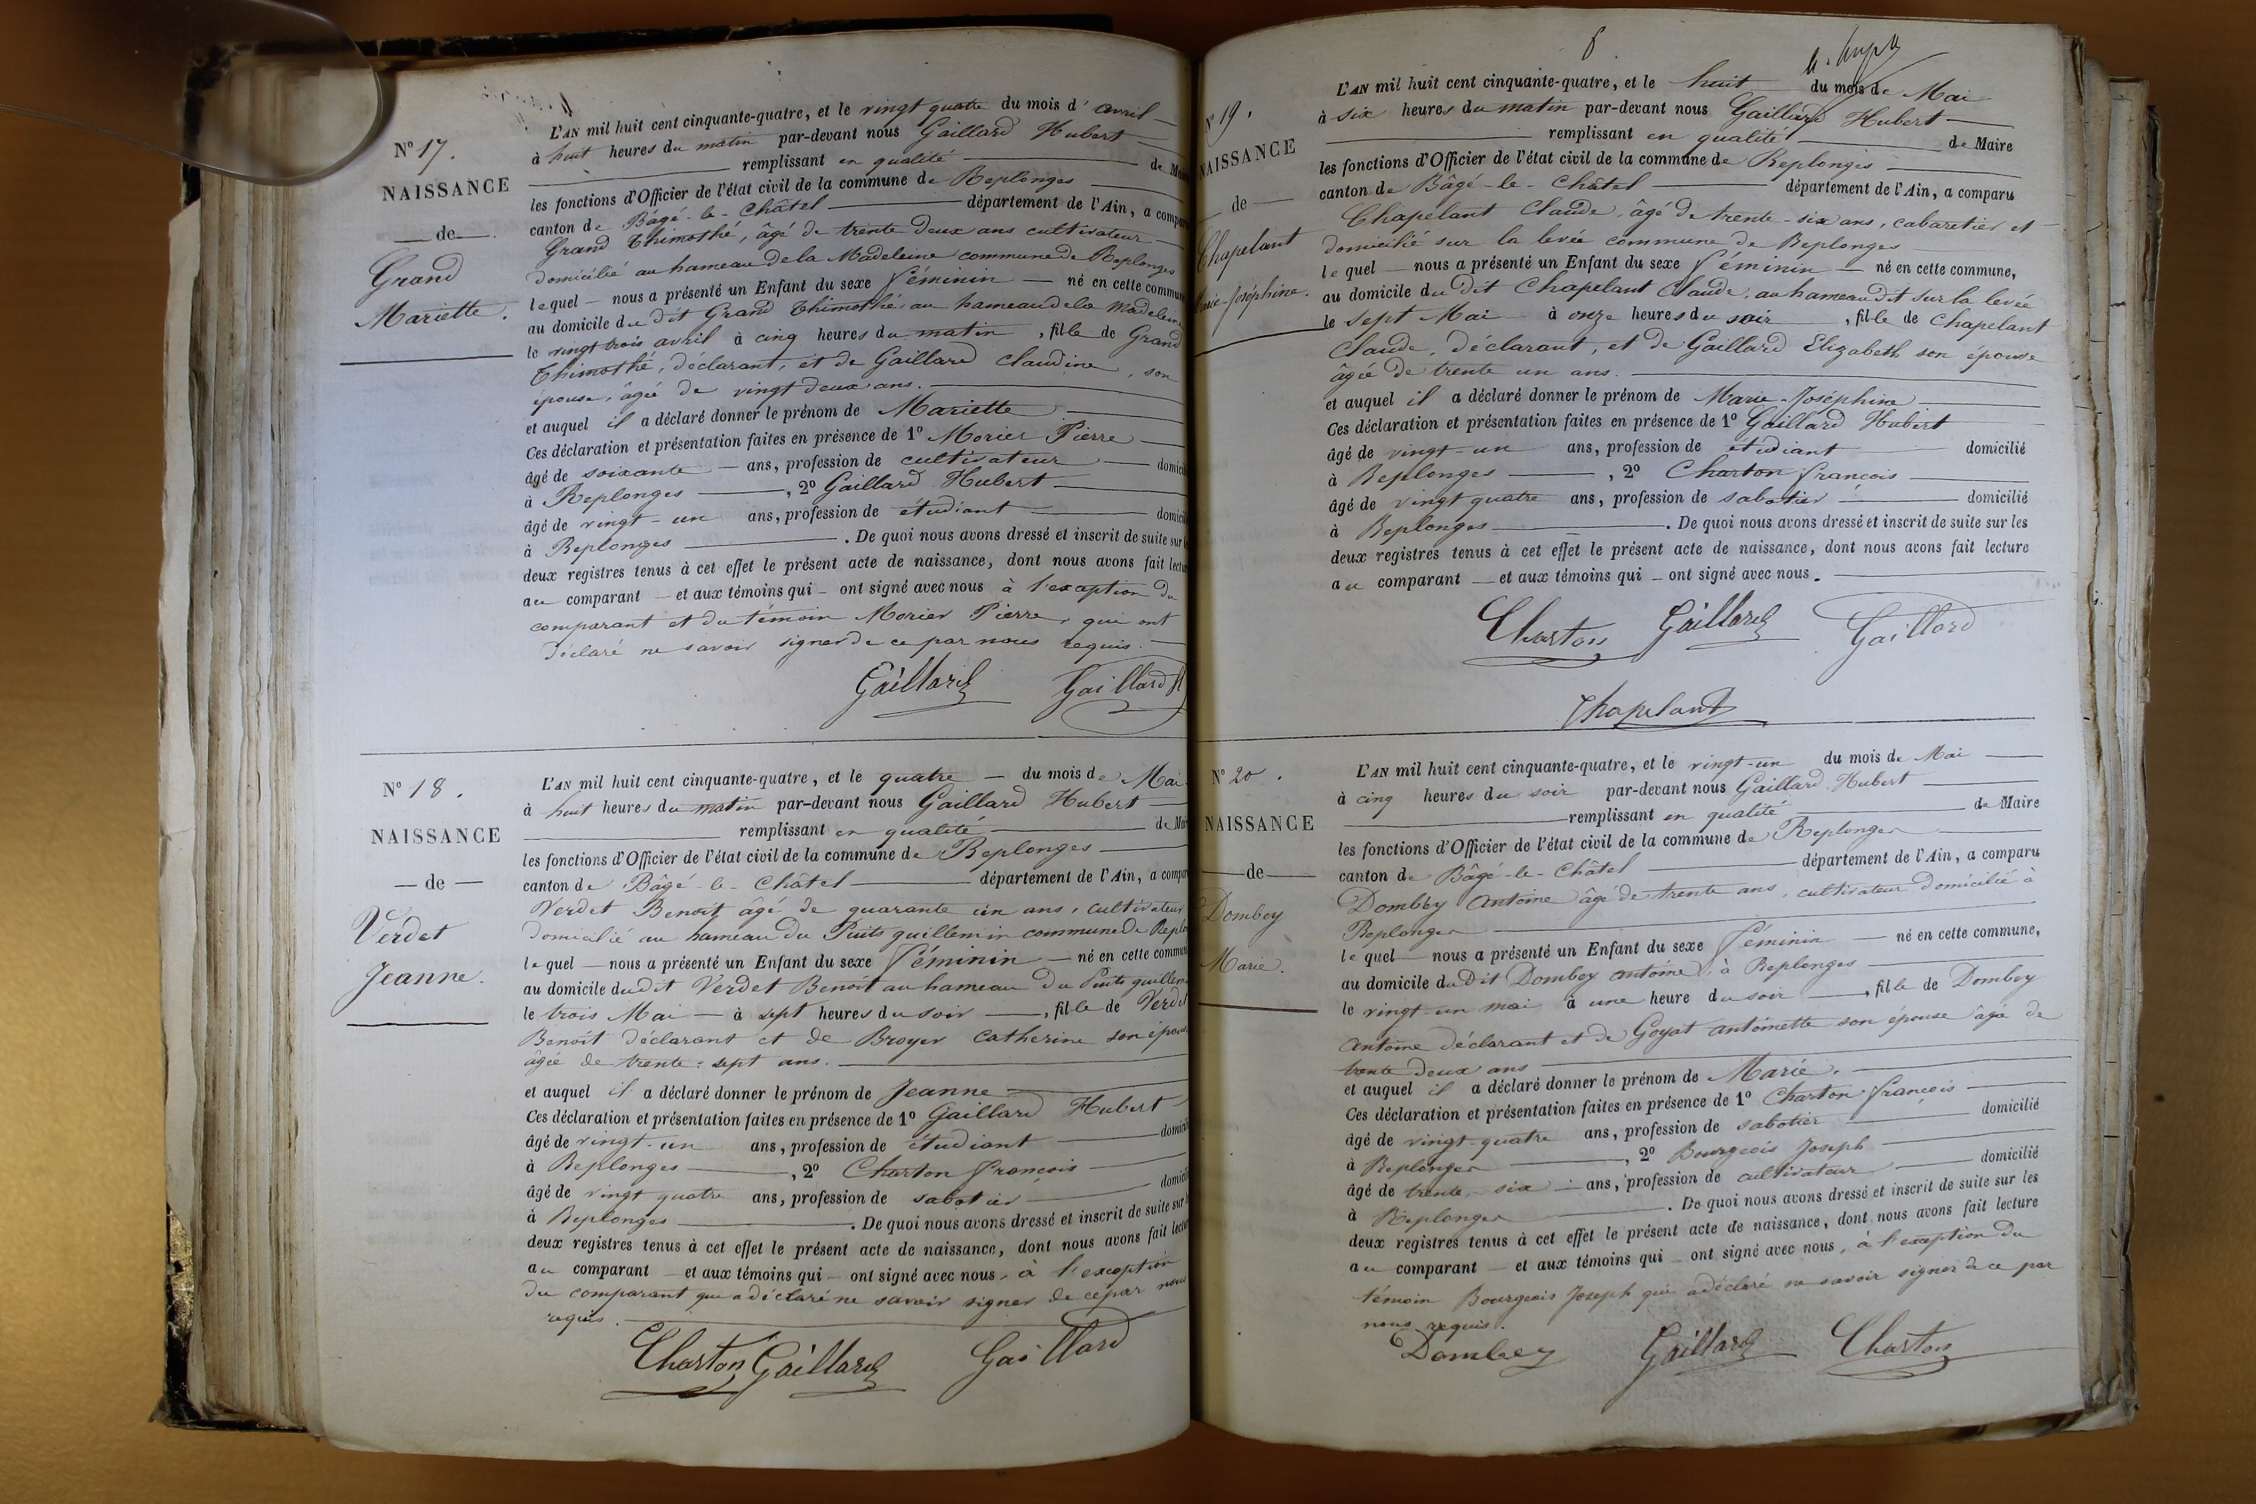 N° 17.
NAISSANCE
de
Grand
Mariette.
L'AN mil huit cent cinquante-quatre, et le vingt quatre du mois d'avril
à huit heures du matin par-devant nous Gaillard Hubert
remplissant en qualité de Ma
les fonctions d'Officier de l'état civil de la commune de Replonges
canton de Bâgé-le-Châtel département de l'Ain, a compar
Grand Thimothé, âgé de trente deux ans cultivateur
domicilié au hameau de la Madeleine commune de Replonges
lequel nous a présenté un Enfant du sexe féminin né en cette commun
au domicile du dit Grand Thimothé, au hameau de la Madeleine
le vingt trois avril à cinq heures du matin, fille de Grand
Thimothé, déclarant, et de Gaillard Claudine, son
épouse, âgée de vingt deux ans.
et auquel il a déclaré donner le prénom de Mariette
Ces déclaration et présentation faites en présence de 1° Morier Pierre
âgé de soixante ans, profession de cultivateur domicil
à Replonges, 2° Gaillard Hubert
âgé de vingt-un ans, profession de étudiant domicil
à Replonges. De quoi nous avons dressé et inscrit de suite sur l
deux registres tenus à cet effet le présent acte de naissance, dont nous avons fait lectur
au comparant et aux témoins qui ont signé avec nous à l'exception du
comparant et du témoin Morier Pierre, qui ont
déclaré ne savoir signer de ce par nous requis.
Gaillard Gaillard H
N° 18.
NAISSANCE
de
Verdet
Jeanne.
L'AN mil huit cent cinquante-quatre, et le quatre du mois de Mai
à huit heures du matin par-devant nous Gaillard Hubert
remplissant en qualité de Mai
les fonctions d'Officier de l'état civil de la commune de Replonges
canton de Bâgé-le-Châtel département de l'Ain, a compar
Verdet Benoît âgé de quarante un ans, cultivateur
domicilié au hameau du Puits guillemin commune de Replo
lequel nous a présenté un Enfant du sexe féminin né en cette commun
au domicile dudit Verdet Benoît au hameau du Puits guillem
le trois Mai à sept heures du soir, fille de Verdet
Benoît déclarant et de Broyer Catherine son épouse
âgée de trente-sept ans.
et auquel il a déclaré donner le prénom de Jeanne
Ces déclaration et présentation faites en présence de 1° Gaillard Hubert
âgé de vingt-un ans, profession de étudiant domicil
à Replonges, 2° Charton françois
âgé de vingt quatre ans, profession de sabotier domicil
à Replonges. De quoi nous avons dressé et inscrit de suite sur l
deux registres tenus à cet effet le présent acte de naissance, dont nous avons fait lectur
au comparant et aux témoins qui ont signé avec nous, à l'exception
du comparant qui a déclaré ne savoir signer de ce par nous
requis.
Charton Gaillard Gaillard
8
N° 19.
NAISSANCE
de
Chapelant
Marie-Joséphine.
L'AN mil huit cent cinquante-quatre, et le huit du mois de Mai
à six heures du matin par-devant nous Gaillard Hubert
remplissant en qualité de Maire
les fonctions d'Officier de l'état civil de la commune de Replonges
canton de Bâgé-le-Châtel département de l'Ain, a comparu
Chapelant Claude, âgé de trente-six ans, cabaretier et
domicilié sur la levée commune de Replonges
lequel nous a présenté un Enfant du sexe féminin né en cette commune,
au domicile du dit Chapelant Claude, au hameau dit sur la levée
le sept Mai à onze heures du soir, fille de Chapelant
Claude, déclarant, et de Gaillard Elizabeth son épouse
âgée de trente un ans.
et auquel il a déclaré donner le prénom de Marie-Joséphine
Ces déclaration et présentation faites en présence de 1° Gaillard Hubert
âgé de vingt-un ans, profession de étudiant domicilié
à Replonges, 2° Charton françois
âgé de vingt quatre ans, profession de sabotier domicilié
à Replonges. De quoi nous avons dressé et inscrit de suite sur les
deux registres tenus à cet effet le présent acte de naissance, dont nous avons fait lecture
au comparant et aux témoins qui ont signé avec nous.
Charton Gaillard Gaillard
Chapelant
N° 20.
NAISSANCE
de
Dombey
Marie.
L'AN mil huit cent cinquante-quatre, et le vingt-un du mois de Mai
à cinq heures du soir par-devant nous Gaillard Hubert
remplissant en qualité de Maire
les fonctions d'Officier de l'état civil de la commune de Replonges
canton de Bâgé-le-Châtel département de l'Ain, a comparu
Dombey Antoine âgé de trente ans, cultivateur domicilié à
Replonges
lequel nous a présenté un Enfant du sexe féminin né en cette commune,
au domicile du dit Dombey antoine, à Replonges
le vingt-un mai à une heure du soir, fille de Dombey
antoine déclarant et de Goyat antoinette son épouse âgée de
trente deux ans
et auquel il a déclaré donner le prénom de Marie.
Ces déclaration et présentation faites en présence de 1° Charton françois
âgé de vingt-quatre ans, profession de sabotier domicilié
à Replonges, 2° Bourgeois Joseph
âgé de trente-six ans, profession de cultivateur domicilié
à Replonges. De quoi nous avons dressé et inscrit de suite sur les
deux registres tenus à cet effet le présent acte de naissance, dont nous avons fait lecture
au comparant et aux témoins qui ont signé avec nous, à l'exception du
témoin Bourgeois Joseph qui a déclaré ne savoir signer de ce par
nous requis.
Dombey Gaillard Charton